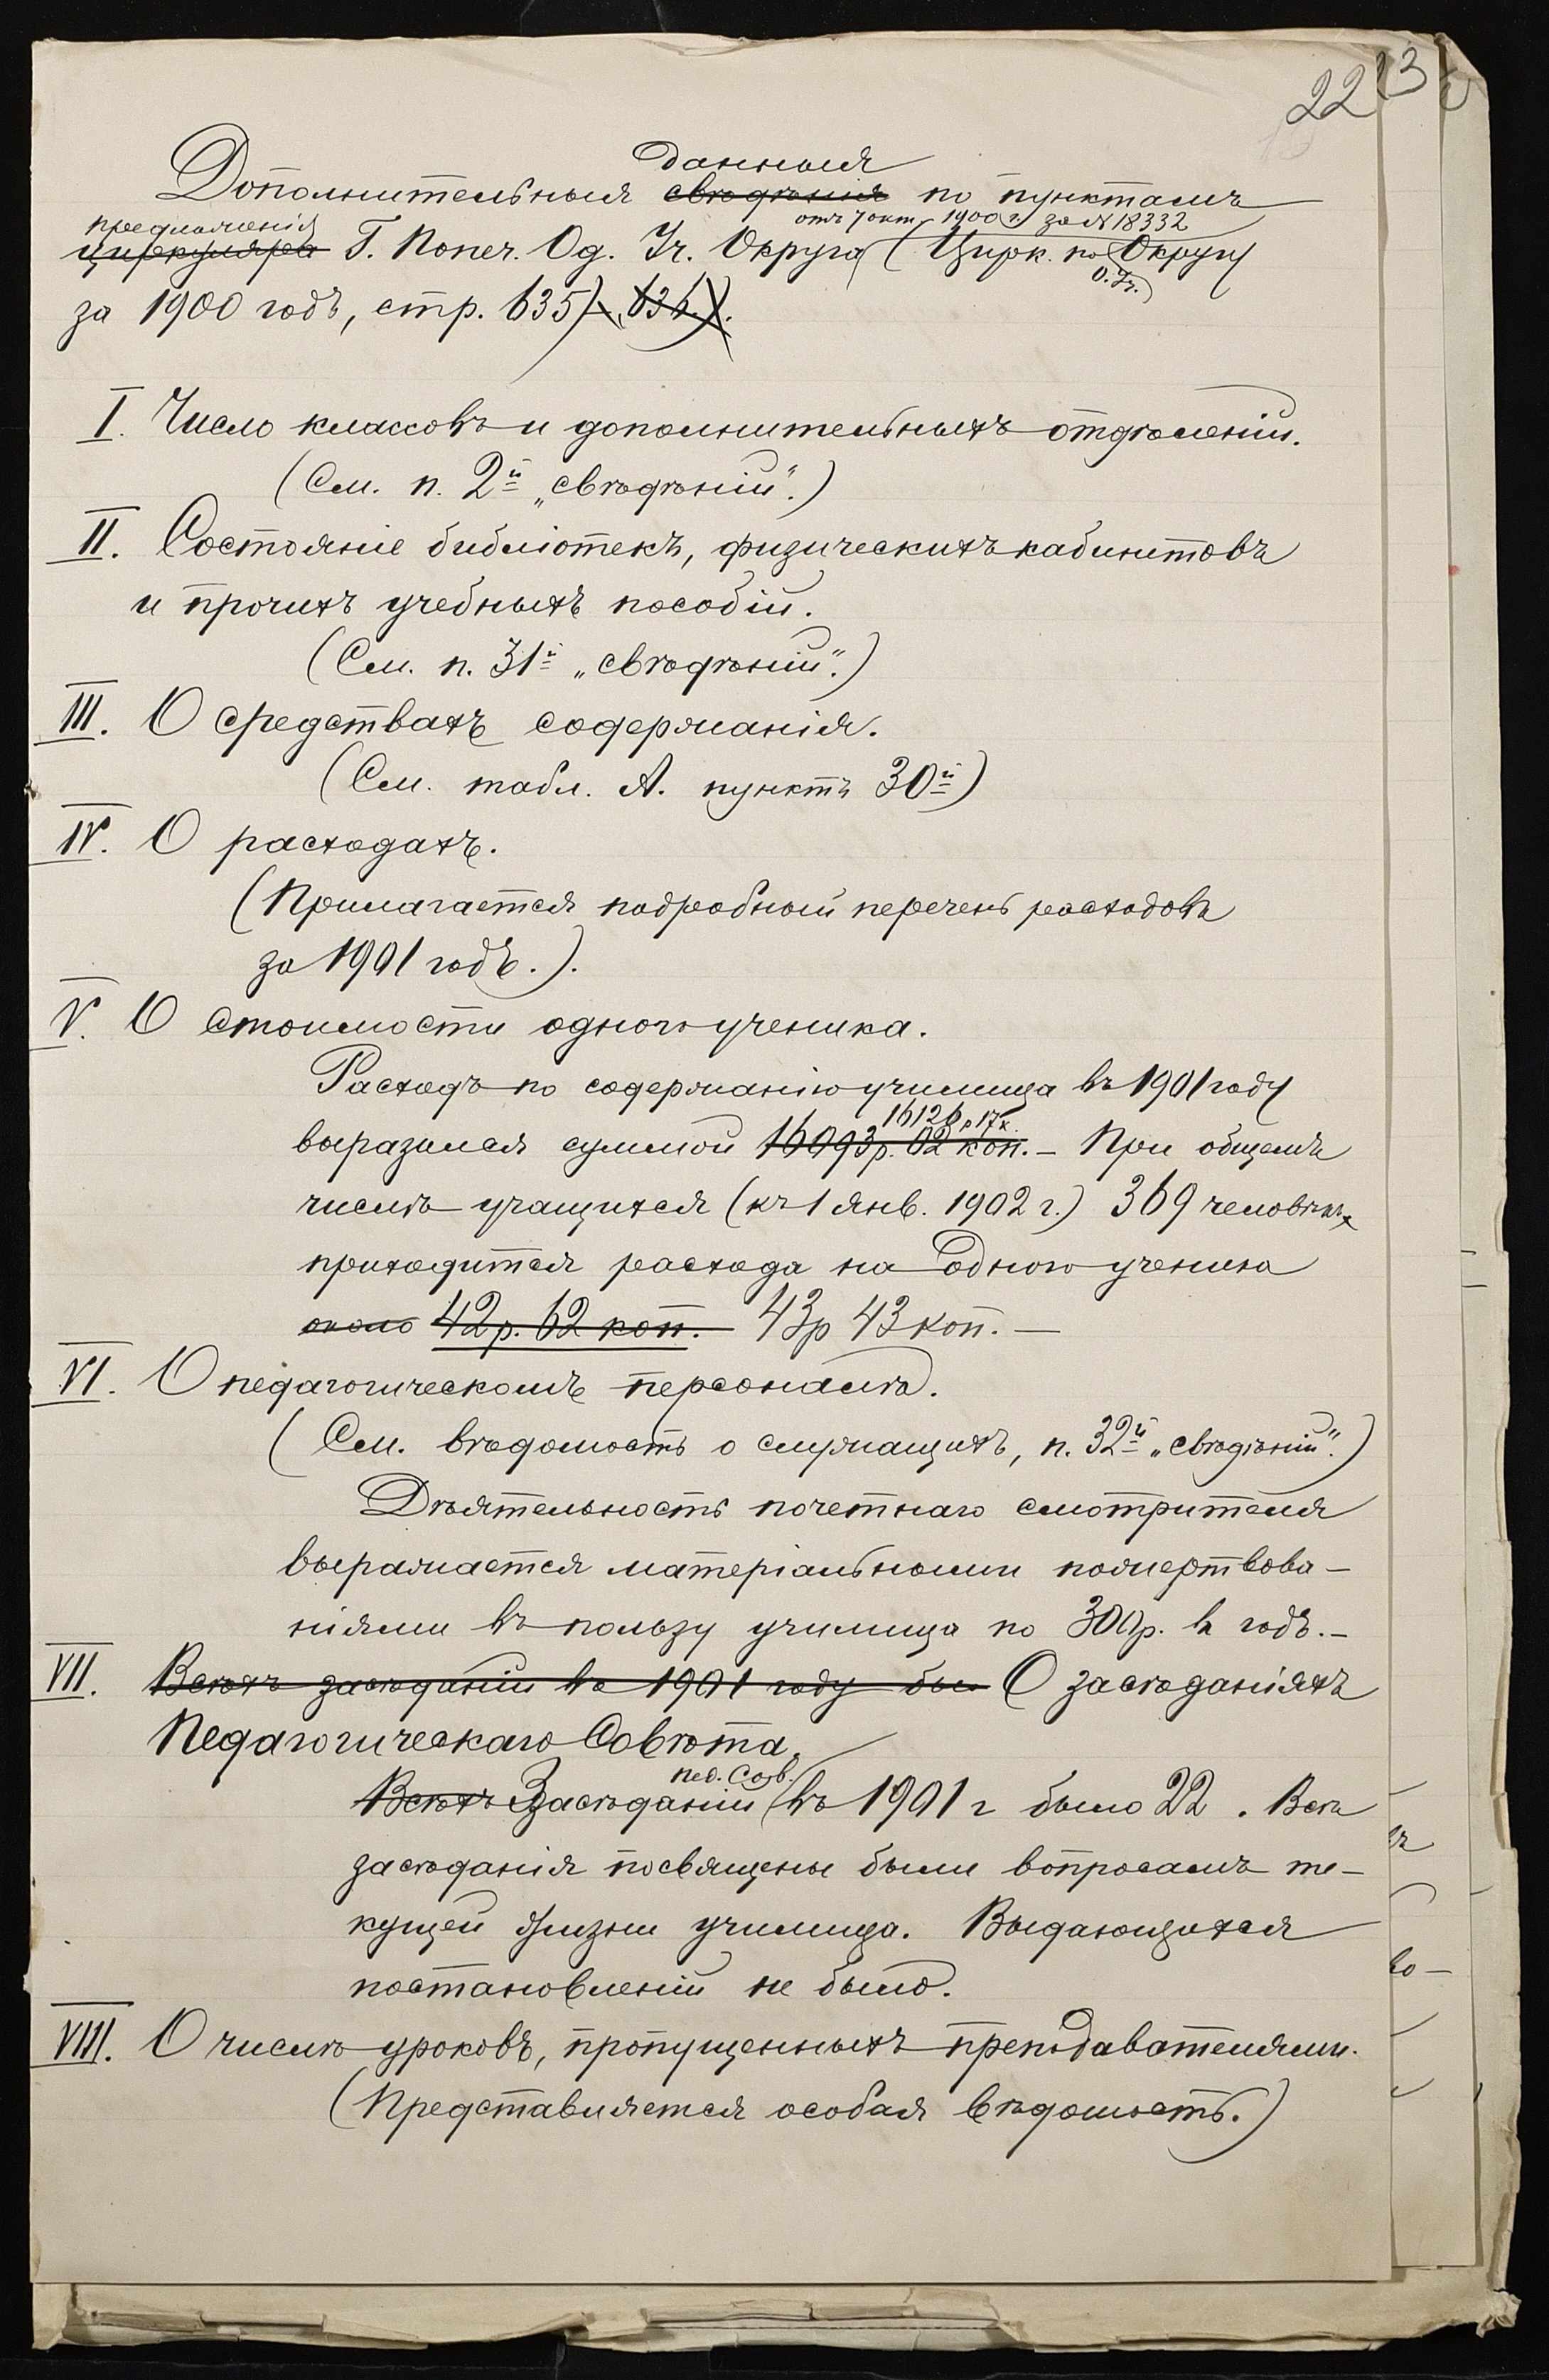 22 23
данныя
Дополнительныя свѣдѣнія по пунктамъ
предложенія отъ 7 окт. 1900 г. за № 18332
циркуляра Г. Попеч. Од. Уч. Округа (Цирк. по Округу
О. Уч.
за 1900 годъ, стр. 635)–636).
I. Число классовъ и дополнительныхъ отдѣленій.
(См. п. 2й „свѣдѣній“.)
II. Состояніе библіотекъ, физическихъ кабинетовъ
и прочихъ учебныхъ пособій.
(См. п. 31й „свѣдѣній“.)
III. О средствахъ содержанія.
(См. табл. А. пунктъ 30й)
IV. О расходахъ.
(Прилагается подробный перечень расходовъ
за 1901 годъ.).
V. О стоимости одного ученика.
Расходъ по содержанію училища въ 1901 году
16126 р 17 к.
выразился суммой 16093 р. 02 коп. – При общемъ
числѣ учащихся (къ 1 янв. 1902 г.) 369 человѣкъ
приходится расхода на одного ученика
около 42 р. 62 коп. 43 р 43 коп. —
VI. О педагогическомъ персоналѣ.
(См. вѣдомость о служащихъ, п. 32й „свѣдѣній“.)
Дѣятельность почетнаго смотрителя
выражается матеріальными пожертвова-
ніями въ пользу училища по 300 р. въ годъ. –
VII. Всѣхъ засѣданій въ 1901 году был О засѣданіяхъ
Педагогическаго Совѣта.
пед. Сов.
Всѣхъ Засѣданій въ 1901 г было 22. Всѣ
засѣданія посвящены были вопросамъ те-
кущей жизни училища. Выдающихся
постановленій не было.
VIII. О числѣ уроковъ, пропущенныхъ преподавателями.
(Представляется особая вѣдомость.)